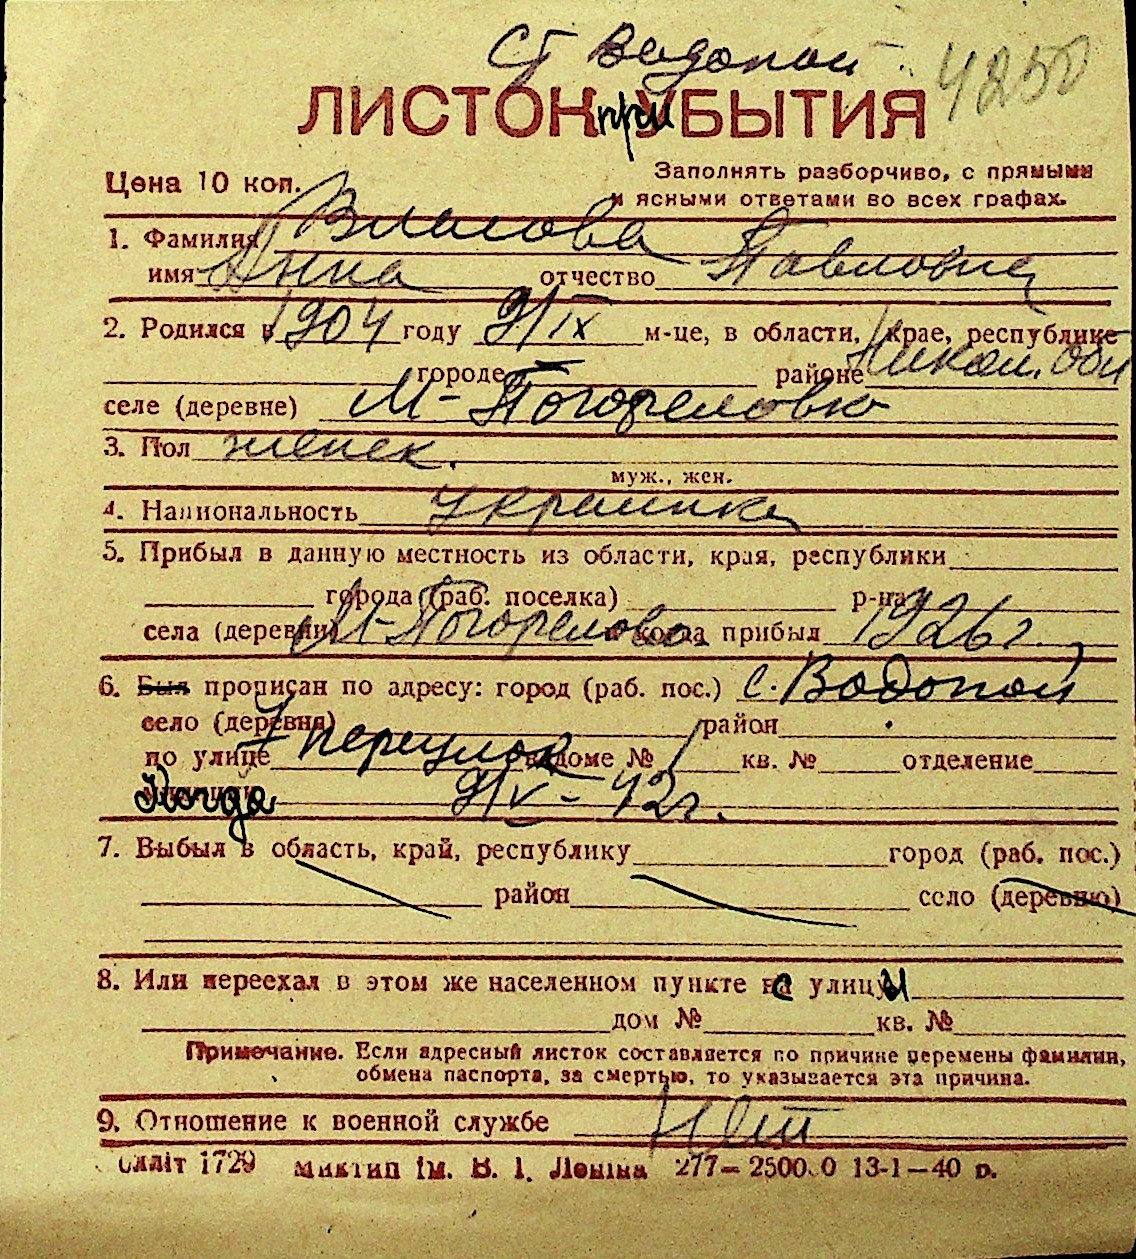 Ст Водопой
4250
ЛИСТОК при УБЫТИЯ
Цена 10 коп.
Заполнять разборчиво, с прямыми
и ясными ответами во всех графах.
1. Фамилия Власова
имя Анна отчество Павловна
2. Родился в 1904 году 9/IX м-це, в области, крае, республике
городе районе Никол. Обл
селе (деревне) М-Погореловко
3. Пол женск.
муж., жен.
4. Национальность украинка
5. Прибыл в данную местность из области, края, республики
города (раб. поселка) р-на
села (деревни) М-Погорелово и когда прибыл 1926 г.
6. Был прописан по адресу: город (раб. пос.) с. Водопой
село (деревня) район
по улице 7 переулок в доме № 1 кв. № отделение
Когда 9/V-42г.
7. Выбыл в область, край, республику город (раб. пос.)
район село (деревню)
8. Или переехал в этом же населенном пункте с улицы
дом № кв. №
Примечание. Если адресный листок составляется по причине перемены фамилии,
обмена паспорта, за смертью, то указывается эта причина.
9. Отношение к военной службе Нет
Облліт 1729 Миктип ім. В. І. Леніна 277—2500.0 13-1—40 р.